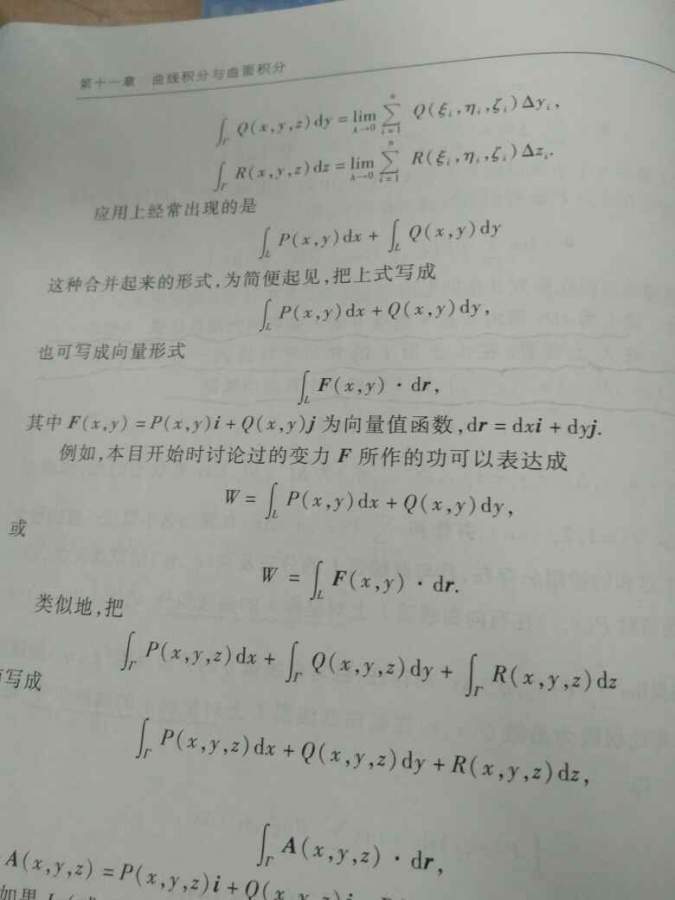 第十一章 曲线积分与曲面积分
∫_Γ Q(x,y,z)dy = lim_{λ→0} ∑_{i=1}^{n} Q(ξ_i,η_i,ζ_i)Δy_i,
∫_Γ R(x,y,z)dz = lim_{λ→0} ∑_{i=1}^{n} R(ξ_i,η_i,ζ_i)Δz_i.
应用上经常出现的是
∫_L P(x,y)dx + ∫_L Q(x,y)dy
这种合并起来的形式,为简便起见,把上式写成
∫_L P(x,y)dx + Q(x,y)dy,
也可写成向量形式
∫_L F(x,y)·dr,
其中 F(x,y) = P(x,y)i + Q(x,y)j 为向量值函数,dr = dxi + dyj.
例如,本目开始时讨论过的变力 F 所作的功可以表达成
W = ∫_L P(x,y)dx + Q(x,y)dy,
或
W = ∫_L F(x,y)·dr.
类似地,把
∫_Γ P(x,y,z)dx + ∫_Γ Q(x,y,z)dy + ∫_Γ R(x,y,z)dz
写成
∫_Γ P(x,y,z)dx + Q(x,y,z)dy + R(x,y,z)dz,
∫_Γ A(x,y,z)·dr,
A(x,y,z) = P(x,y,z)i + Q(x,y,z)j
如果